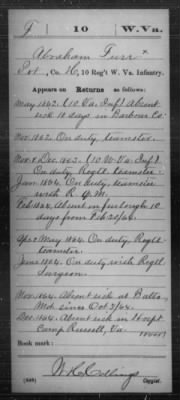 F | 10 | W. Va.
Abraham Furr x
Pvt, Co. K, 10 Reg't W. Va. Infantry.
Appears on Returns as follows:
May 1862. (10 Va. Inf) Absent
sick 10 days in Barbour Co.
Nov. 1862. On duty, teamster.
Nov. & Dec. 1862. (10 W. Va. Inf).
On duty Regtl teamster.
Jan. 1864. On duty, teamster
with R. Q. M.
Feb 1864. Absent on furlough 10
days from Feb 20/64.
Apr & May 1864. On duty, Regtl
teamster.
June 1864. On duty with Regtl
Surgeon.
Nov. 1864. Absent sick at Balto.,
Md. since Oct 3/64.
Dec. 1864. Absent sick in Hospt
Camp Russell, Va.
Book mark:
(546)
Copyist.